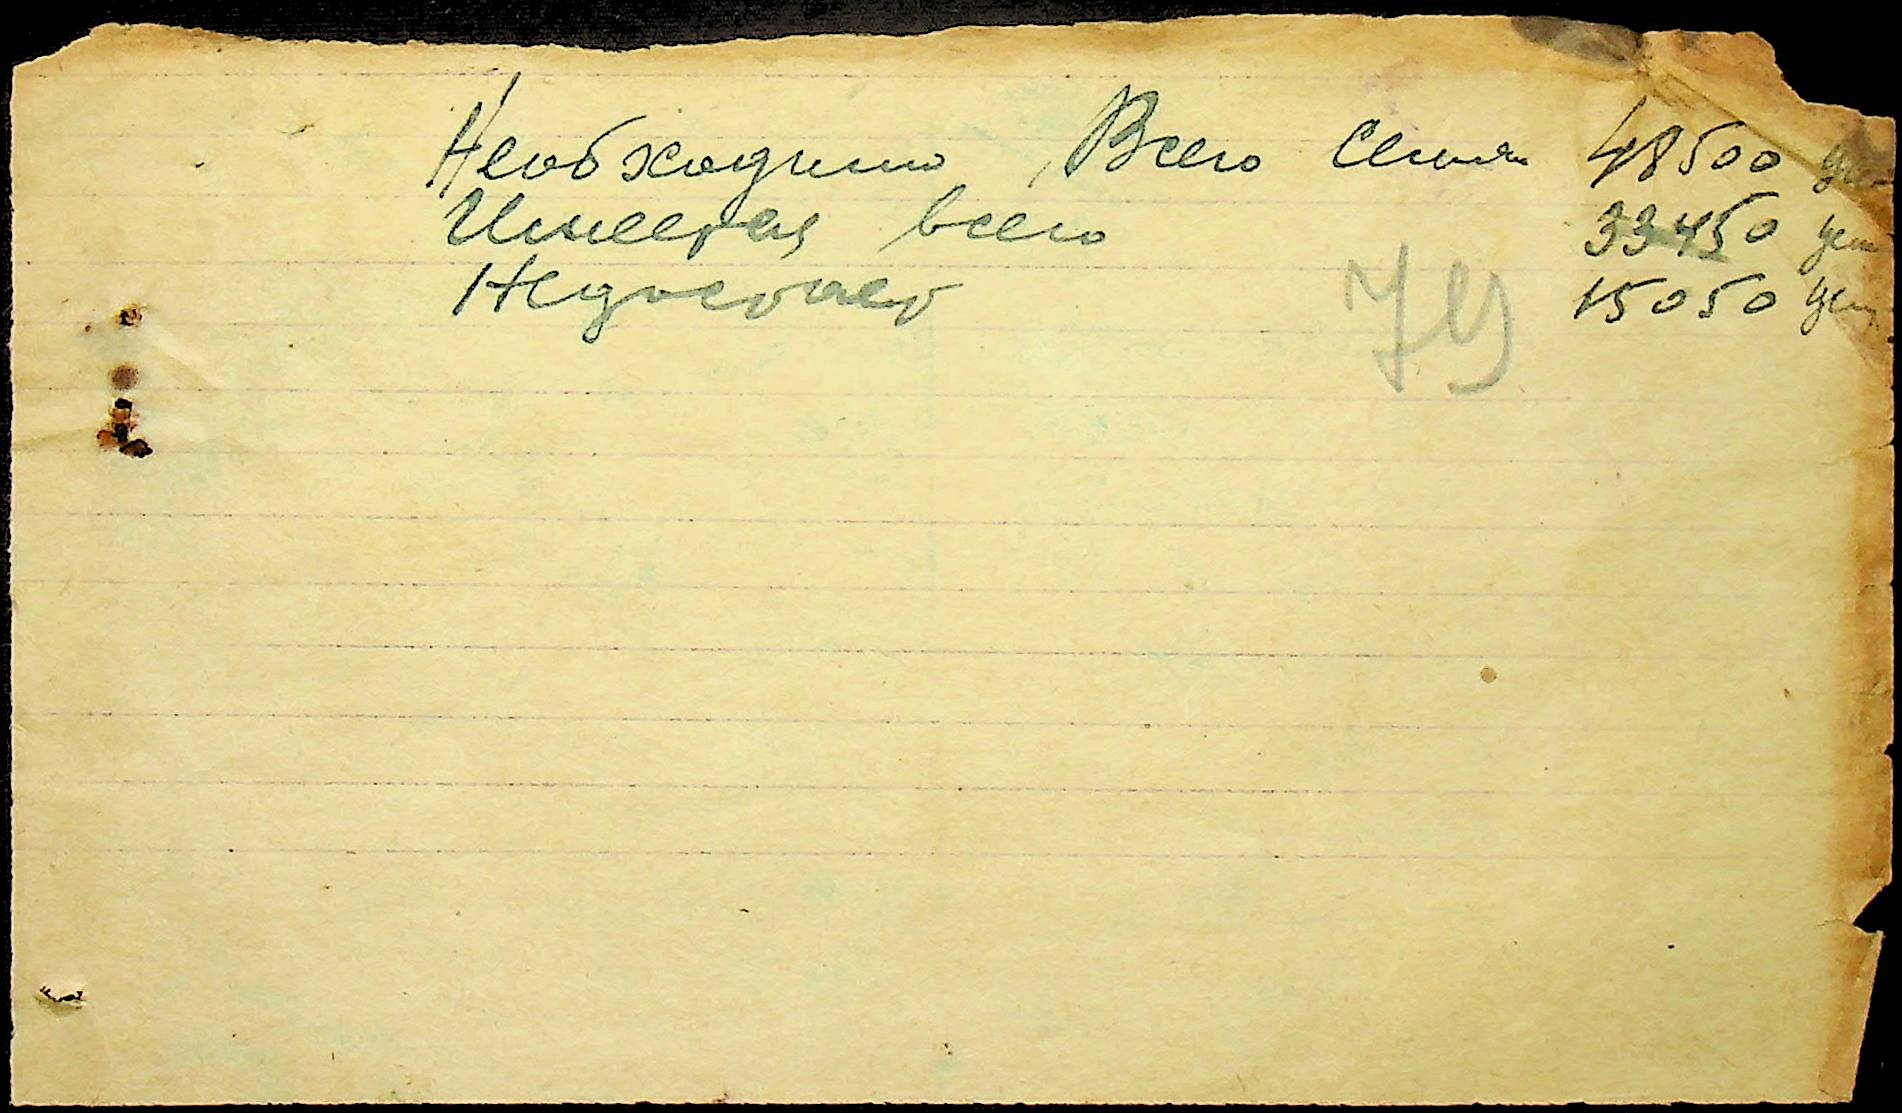 Необходимо Всего Семян 48500 цен
Имеется всего 33450 цен
Недостает 15050 цен
79